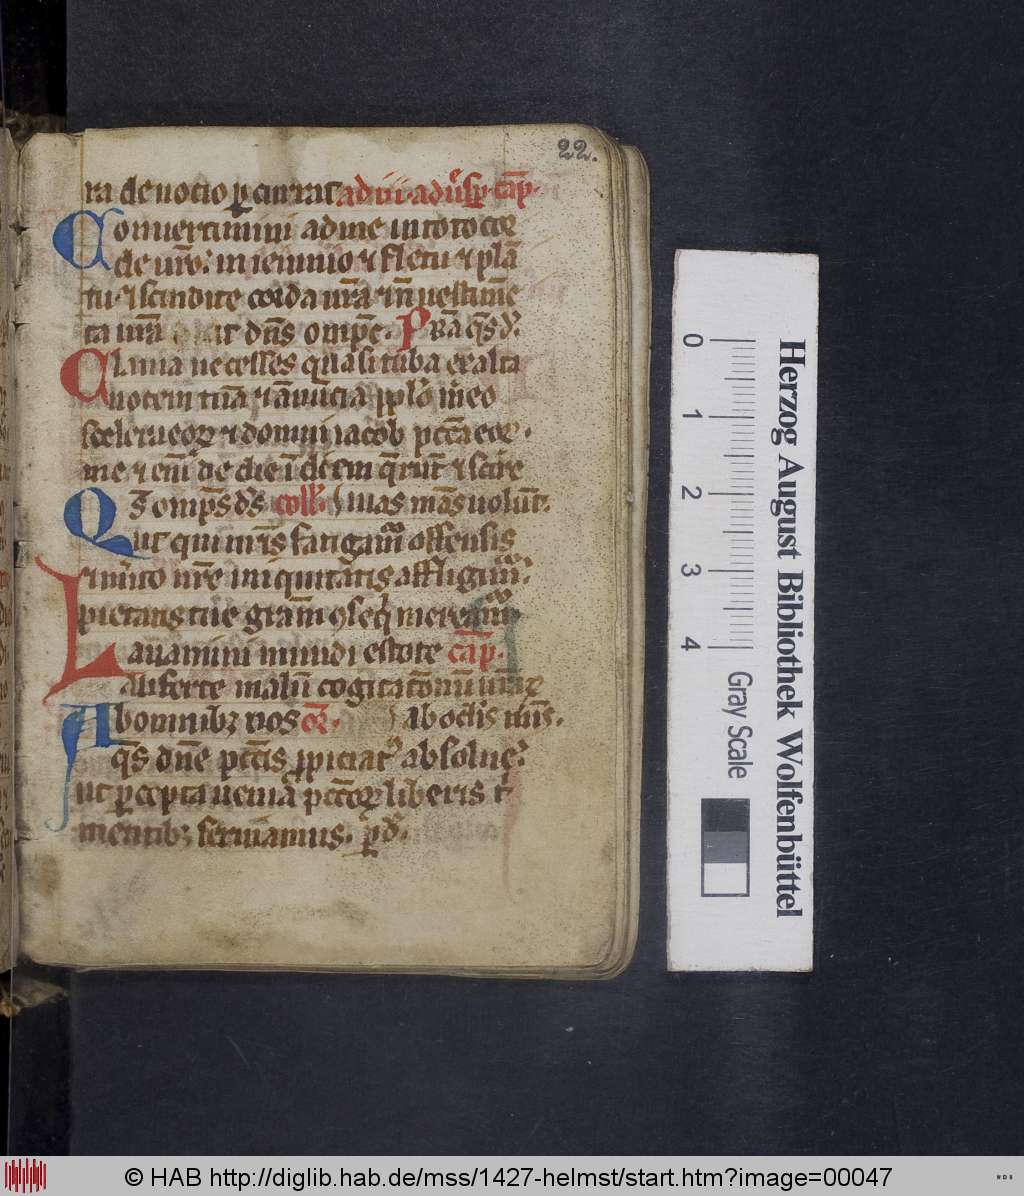 22.
ra deuocio ꝑcurrat ad iii. ad uesp. cap.
Conuertimini ad me in toto cor
de uro. in ieiunio ⁊ fletu ⁊ plā
tu. ⁊ scindite corda ura ⁊ n̄ uestime
ta ura ait dn̄s omp̄c. Pra q̄s d.
Clama ne cesses quasi tuba exalta
uocem tuā ⁊ ānūcia pplo meo
scelera eoꝝ ⁊ domui iacob pctā eoꝝ.
me ⁊ enī de die ī diem q̄rūt ⁊ scire
Qs omps ds coll. uias meas uolūt.
ut qui in nris fatigamur offensis
⁊ merito nre iniquitatis affligimur.
pietatis tue gram ꝯseq mereamur
Lauamini mundi estote cap.
auferte malū cogitationū urarꝫ
Ab omnibꝫ nos ab oculis meis.
qs dne pctis ꝓpiciat absolue.
ut ꝑcepta uenia pctōꝝ liberis t
mentibꝫ seruiamus. ꝑ d.
Herzog August Bibliothek Wolfenbüttel
0 1 2 3 4
Gray Scale
© HAB http://diglib.hab.de/mss/1427-helmst/start.htm?image=00047